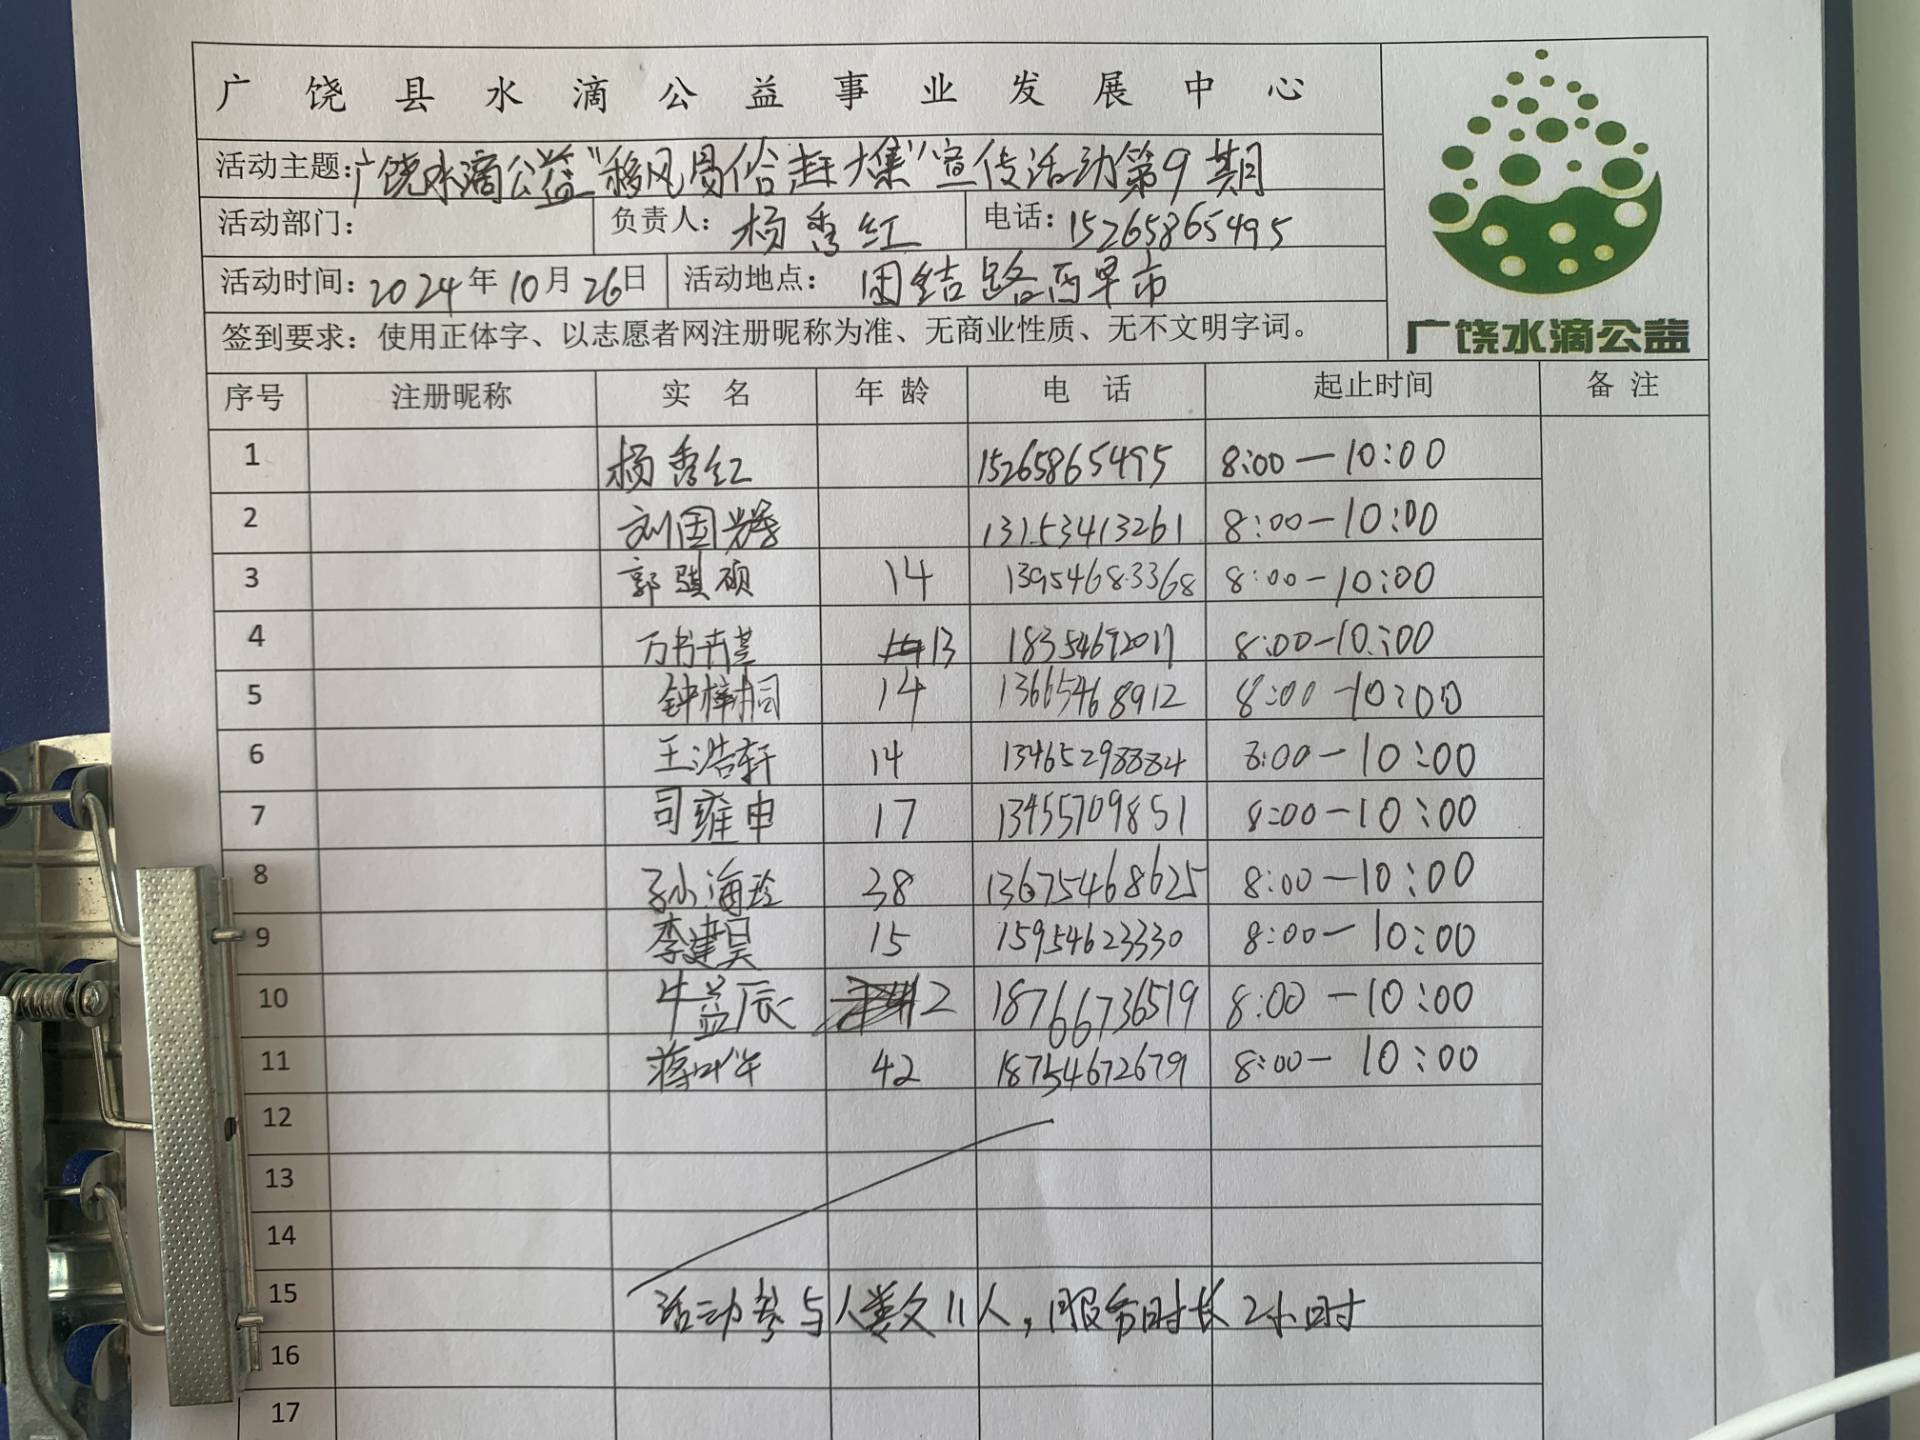 广饶县水滴公益事业发展中心
活动主题:广饶水滴公益“移风易俗赶大集”宣传活动第9期
活动部门: 负责人: 杨秀红 电话: 15265865495
活动时间: 2024年10月26日 活动地点: 团结路西早市
签到要求: 使用正体字、以志愿者网注册昵称为准、无商业性质、无不文明字词。
广饶水滴公益
序号 注册昵称 实名 年龄 电话 起止时间 备注
1 杨秀红 15265865495 8:00—10:00
2 刘国 13153413261 8:00—10:00
3 郭骐硕 14 13954683368 8:00—10:00
4 万书卉 13 18354692017 8:00—10:00
5 钟梓桐 14 13665468912 8:00—10:00
6 王浩轩 14 13465298884 8:00—10:00
7 司雍申 17 13455709851 8:00—10:00
8 孙海玲 38 13675468625 8:00—10:00
9 李建昊 15 15954623330 8:00—10:00
10 牛益辰 12 18766736519 8:00—10:00
11 蒋叶午 42 18754672679 8:00—10:00
12
13
14
15 活动参与人数11人,服务时长2小时
16
17